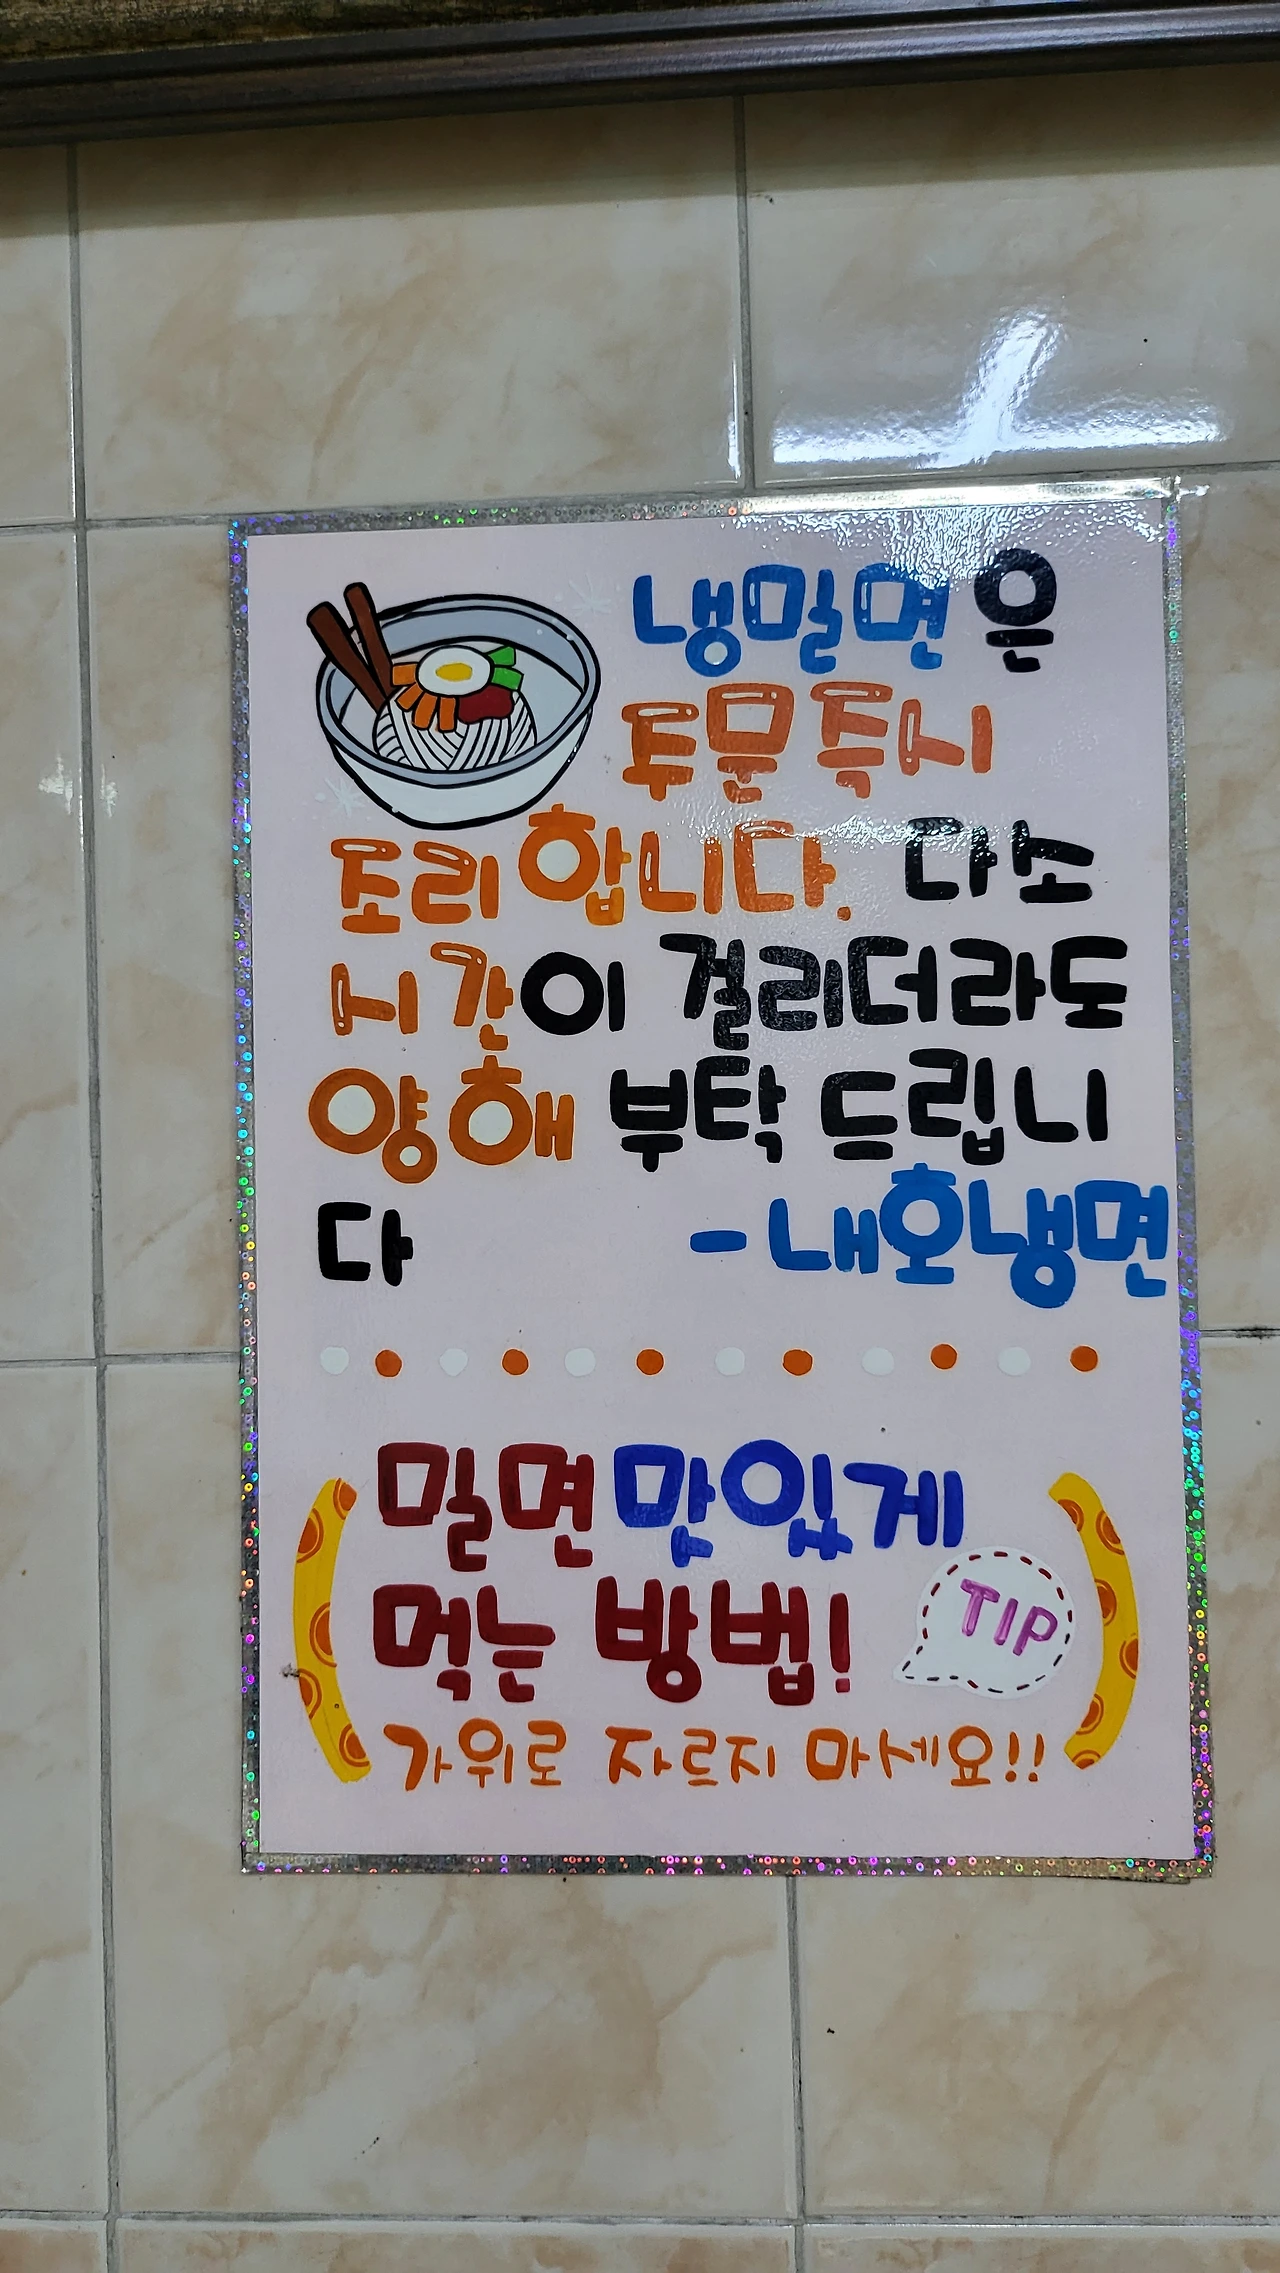 냉밀면 은
주문 즉시
조리합니다. 다소
시간이 걸리더라도
양해 부탁 드립니
다 - 내호냉면
밀면 맛있게
먹는 방법!
TIP
가위로 자르지 마세요!!